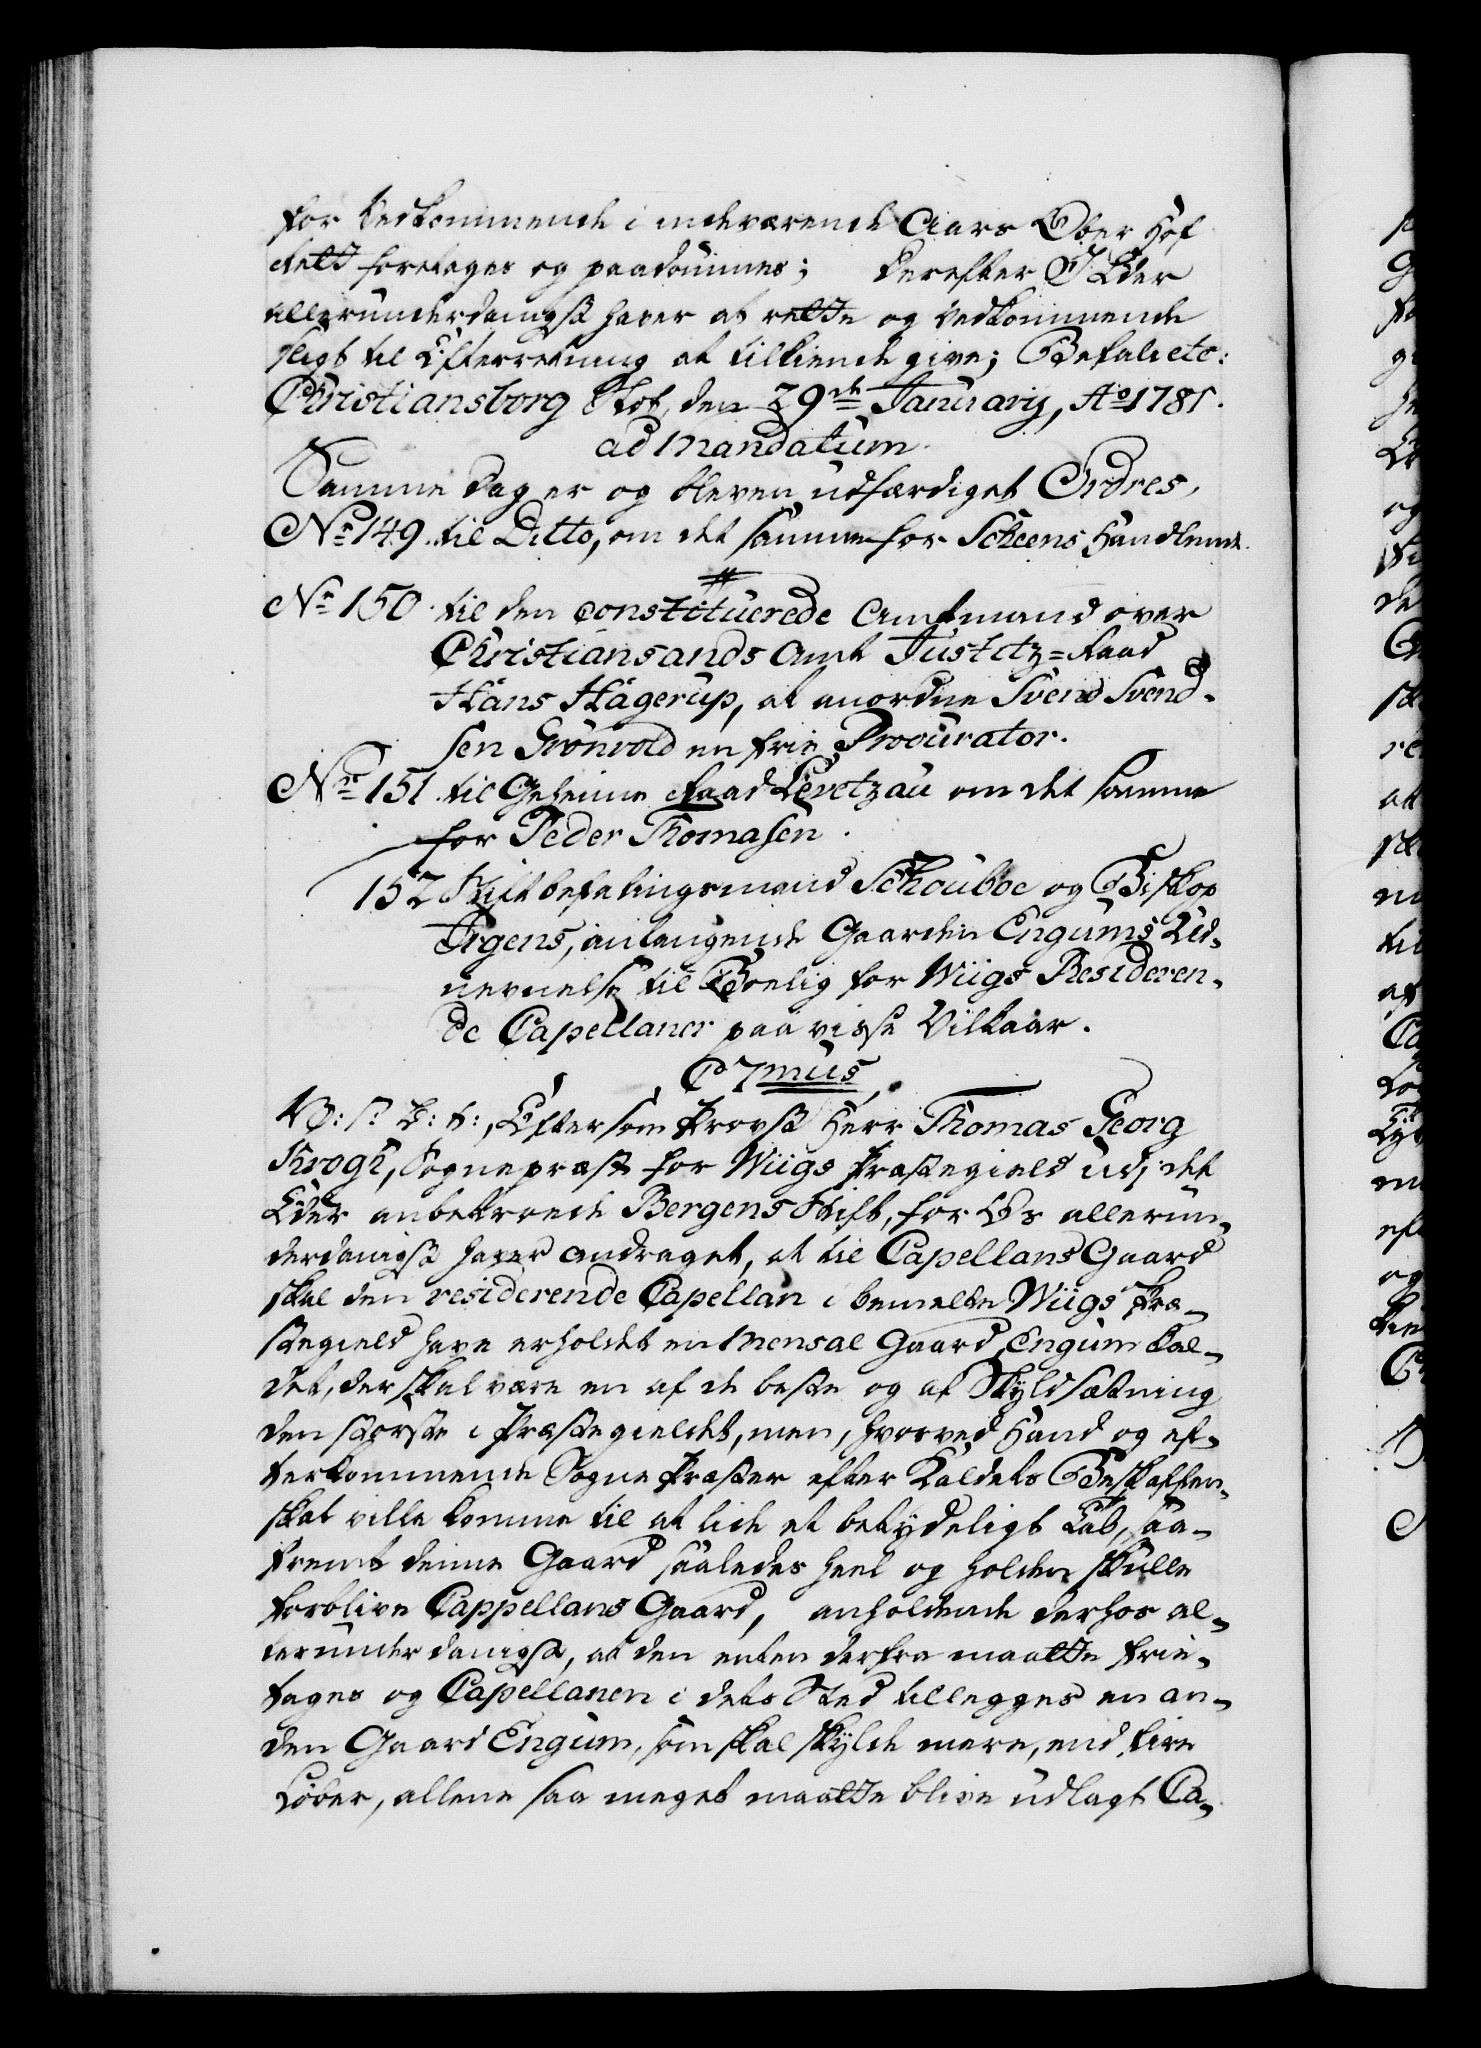 for Vedkommende i indeværende Aars Ober Hof
Rett foretages og paadømmes; Derefter I Eder
allerunderdanigst haver at rette og Vedkommende
sligt til Efterretning at tilkiende give; Befal: etc:
Christiansborg Slot, den 29de January, Ao 1781.
ad mandatum.
Samme Dag er og bleven udfærdiget Ordres,
No 149. til Ditto, om det samme for Scheens Handlende.
No 150. til den constituerede Amtmand over
Christiansands Amt Justitz-Raad
Hans Hagerup, at anordne Svend Svend-
sen Grönvold en frie Procurator.
No 151. til Geheime Raad Levetzau om det samme
for Peder Thomasen.
152 Stiftbefalingsmand Schouboe og Biskop
Irgens, anlangende Gaarden Engums Ud-
nevnelse til Boelig for Wiigs Resideren-
de Capellaner paa visse Vilkaar.
C 7mus
V: S: G: T:, Eftersom Provst Herr Thomas Georg
Krogh, Sognepræst for Wiigs Præstegield udj det
Eder anbetroede Bergens Stift, for Os allerun-
derdanigst haver andraget, at til Capellans Gaard
skal den residerende Capellan i bemelte Wiigs Præ-
stegield have erholdet en Mensal Gaard, Engum kal-
det, der skal være en af de beste og af Skyldsætning
den største i Præstegieldet, men, hvorved Hand og ef-
terkommende Sogne Præster efter Kaldets Beskaffen-
skab ville komme til at lide et betydeligt Tab, saa-
fremt denne Gaard saaledes heel og holden skulle
forblive Cappellans Gaard, anholdende derhos al-
lerunderdanigst, at den enten derfra maatte frie-
tages og Capellanen i dets Sted tillegges en an-
den Gaard Engum, som skal skylde mere, end fire
Løber, allene saa meget maatte blive udlagt Ca-